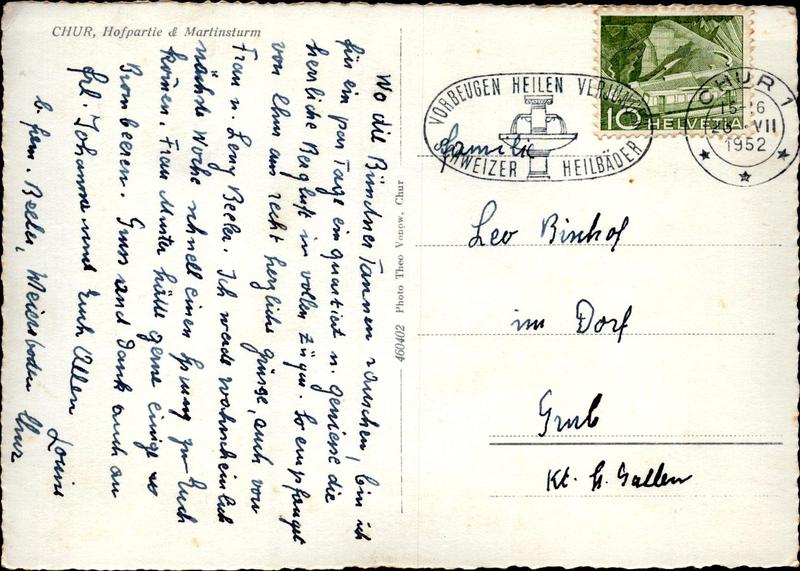 CHUR, Hofpartie & Martinsturm
Wo die Bündner Tannen rauschen, bin ich
für ein par Tage einquartiert u. geniesse die
herrliche Bergluft in vollen Zügen. So empfangt
von Chur aus recht herzliche Grüsse, auch von
Frau u. Leny Beeler. Ich werde wahrscheinlich
nächste Woche schnell einen Sprung zu Euch
kommen. Frau Munter hätte gerne einige
Brombeeren. Gruss und Dank auch an
Frl. Johanna und Euch Allen Louise
b. Fam. Beeler, Weiersboden Chur
460402 Photo Theo Vonow, Chur
VORBEUGEN HEILEN VERJÜNGEN
SCHWEIZER HEILBÄDER
10 HELVETIA
CHUR 1
VII
1952
Familie
Leo Bischof
im Dorf
Grub
Kt. St. Gallen